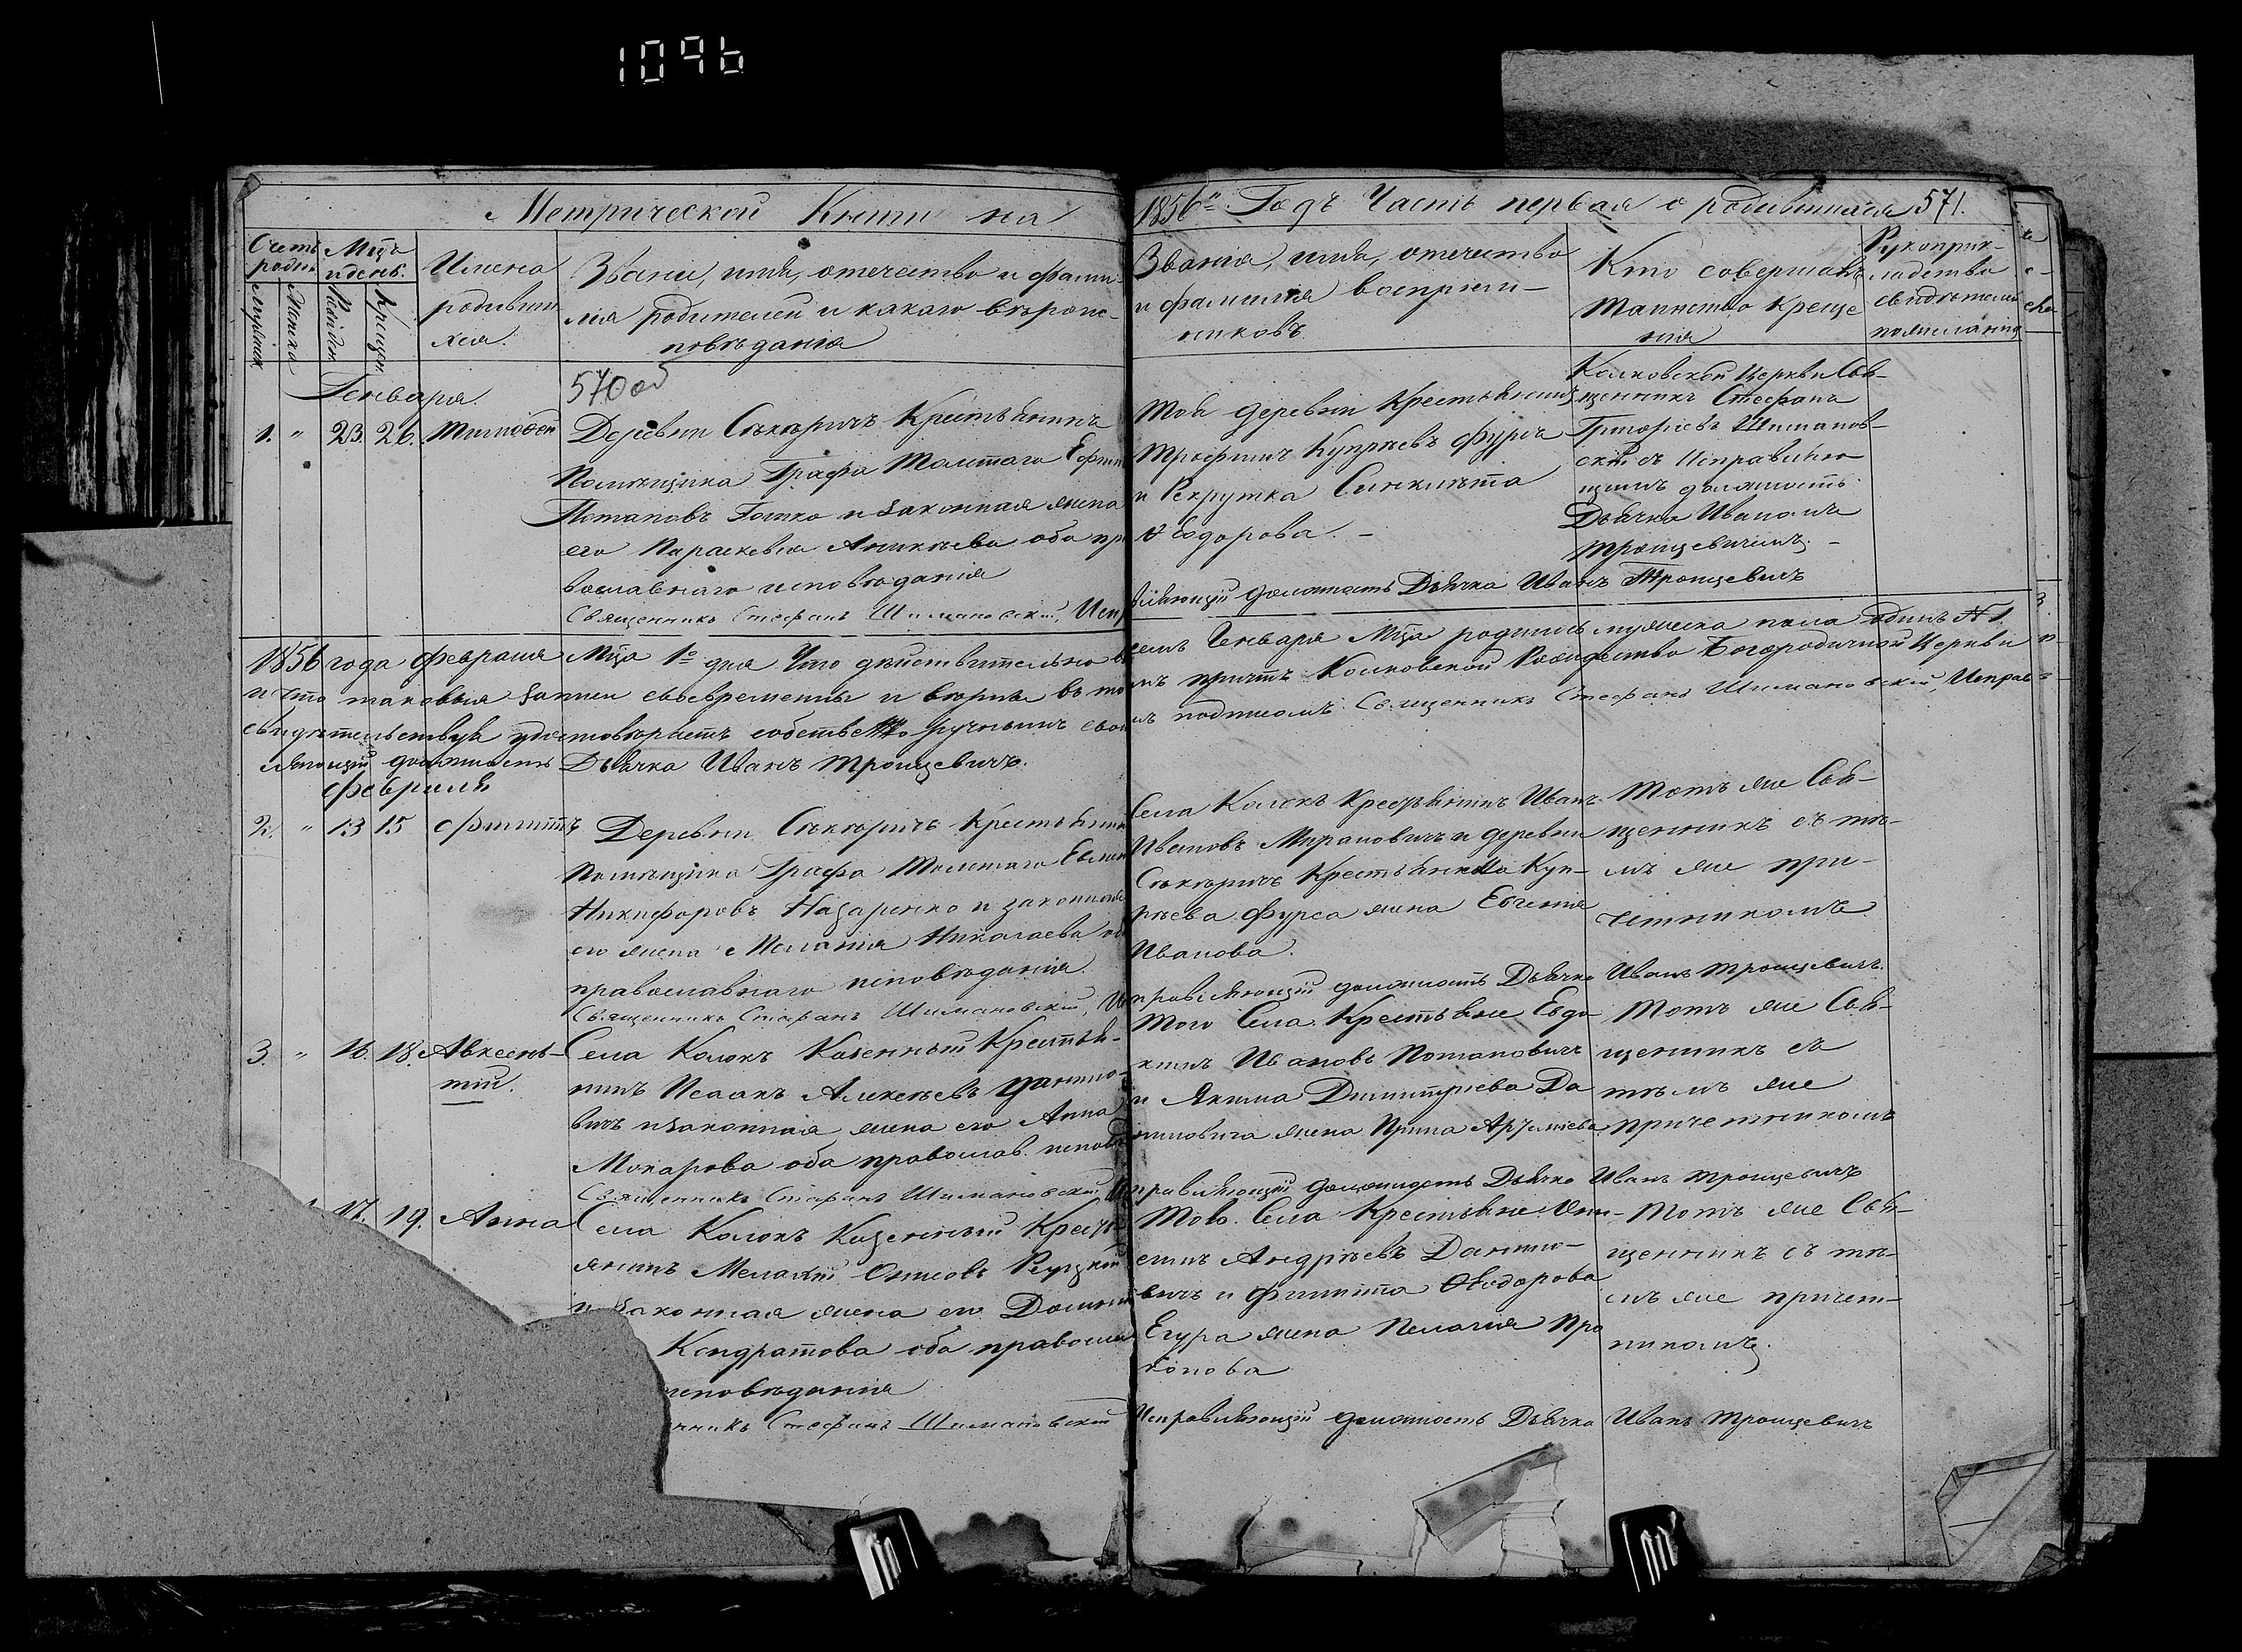 1096
Метрической Книги на
1856й Годъ Часть первая о родившихся 571.
Счетъ родив.
Мужеска
Женска
Мцъ и день.
Рожден.
Крещен.
Имена
родивши
хся.
Званіе, имя, отечество и фами-
лія родителей и какаго вѣроис-
повѣданія
Званія, имя, отечество
и фамилія воспріем-
никовъ
Кто совершалъ
Таинство Креще
нія
Рукоприк-
ладство
свидѣтелей
по желанію
570 об
Генваря.
1. " 23. 26. Тимофей
Деревни Крестьянинъ
Помѣщика Графа Толстаго
Потаповъ и законная жена
его Параскевія оба пра
вославнаго исповѣданія
Священникъ Стефанъ Шимановский, Исп
Той деревни Крестьянинъ
Трофимъ Купріевъ Фурса
и Рекрутка Синклита
Ѳеодорова. -
вляющій должность Дьячка Иванъ Троцевичъ
Колковской Церкви Свя-
щенникъ Стефанъ
Григорьевъ Шиманов-
скій съ Исправляю
щимъ должность
Дьячка Иваномъ
Троцевичемъ. -
1856 года Февраля Мца 1го дня Что дѣйствительно въ
семъ Генваря Мцѣ родилось мужеска пола одинъ № 1
и что таковыя записи своевременны и вѣрны въ то
мъ причтъ Колковской Рождество Богородичной Церкви
свидѣтельствуя удостовѣряетъ собственно ручнымъ сво
мъ подписомъ Священникъ Стефанъ Шимановский, Исправ
ляющій должность Дьячка Иванъ Троцевичъ.
Февраля
2. " 13 15 Филиппъ
Деревни Крестьянин
Помѣщика Графа Толстаго
Никифоровъ Назаренко и законная
его жена Меланія Николаева
православнаго исповѣданія.
Священникъ Стефанъ Шимановский, Ис
Села Колокъ Крестьянинъ Иванъ
Ивановъ Мирановичъ и деревни
Крестьянина Куп-
ріева Фурса жена Евгенія
Иванова.
правляющій должность Дьячка Иванъ Троцевичъ.
Тотъ же Свя-
щенникъ съ тѣ-
мъ же при-
четникомъ
3. " 16. 18. Авксен-
тій.
Села Колокъ Казенный Крестья-
нинъ Исаакъ Алексѣевъ Данило-
вичъ и законная жена его Анна
Макарова оба православ. исповѣд
Священникъ Стефанъ Шимановский, Ис
Того Села Крестьяне Евдо
кимъ Ивановъ Потаповичъ
и Якима Димитріева Да
ниловича жена Ирина
правляющій должность Дьячка Иванъ Троцевичъ
Тотъ же Свя-
щенникъ съ
тѣмъ же
причетникомъ
17. 19. Анна
Села Колокъ Казенный Крестья
янинъ
и законная жена его
Кондратова оба православ
исповѣданія
нникъ Стефанъ Шимановский
Того Села Крестьяне
Андрѣевъ Данило-
вичъ и Филиппа Ѳеодорова
Егура жена Пелагія Про
копова
Исправляющій должность Дьячка Иванъ Троцевичъ
Тотъ же Свя-
щенникъ съ тѣ-
мъ же причет-
никомъ.